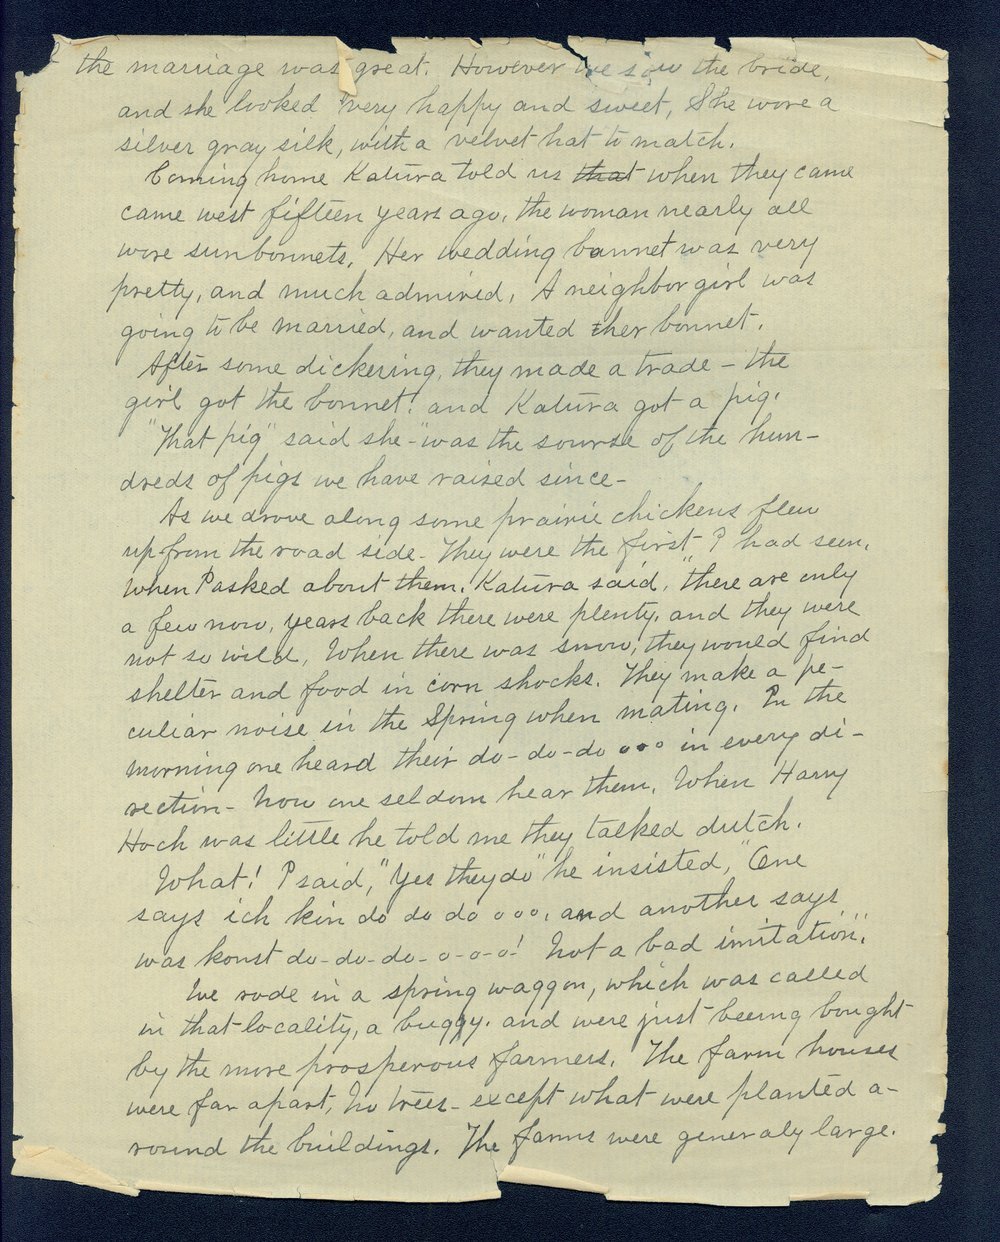 the marriage was great. However we saw the bride,
and she looked very happy and sweet, She wore a
silver gray silk, with a velvet hat to match.
Coming home Katura told us that when they came
came west fifteen years ago, the woman nearly all
wore sunbonnets. Her wedding bonnet was very
pretty, and much admired, A neighbor girl was
going to be married, and wanted ther bonnet.
After some dickering, they made a trade - the
girl got the bonnet. and Katura got a pig.
"That pig" said she - "was the sourse of the hun-
dreds of pigs we have raised since -
As we drove along some prairie chickens flew
up from the road side - They were the first I had seen.
When I asked about them, Katura said, "there are only
a few now, years back there were plenty, and they were
not so wild, When there was snow, they would find
shelter and food in corn shocks. They make a pe-
culiar noise in the Spring when mating. In the
morning one heard their do-do-do o o o in every di-
rection - Now one seldom hear them. When Harry
Hoch was little he told me they talked dutch.
What! I said, "Yes they do" he insisted, "One
says ich kin do do do o o o, and another says
was konst do-do-do-o-o-o! Not a bad imitation".
We rode in a spring waggon, which was called
in that locality, a buggy. and were just beeing bought
by the more prosperous farmers. The farm houses
were far apart, No trees - except what were planted a-
round the buildings. The farms were generaly large.